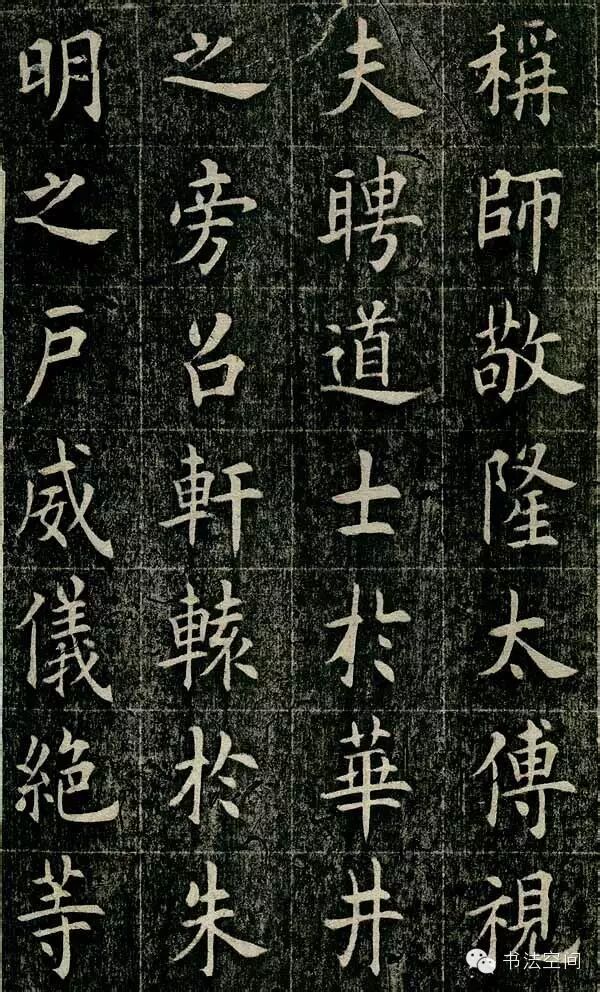 稱師敬隆太傅視
夫聘道士於華井
之旁召軒轅於朱
明之戶威儀絶等
书法空间